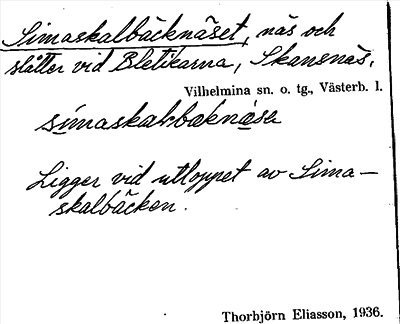 Simaskalbäcknäset, näs och
slåtter vid Bletikarna, Skansnäs,
Vilhelmina sn. o. tg., Västerb. l.
Ligger vid utloppet av Sima-
skalbäcken.
Thorbjörn Eliasson, 1936.